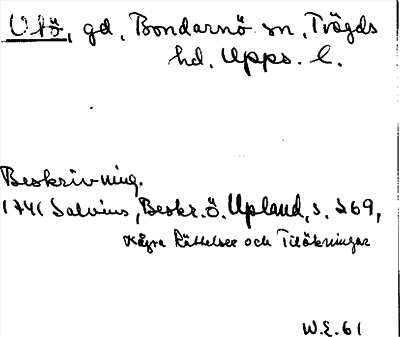 Utö, gd, Bondarnö sn, Trögds
hd, Upps. l.
Beskrivning.
1741 Salvius, Beskr. ö. Upland, s. 269,
Några Rättelser och Tilökningar
W.E. 61